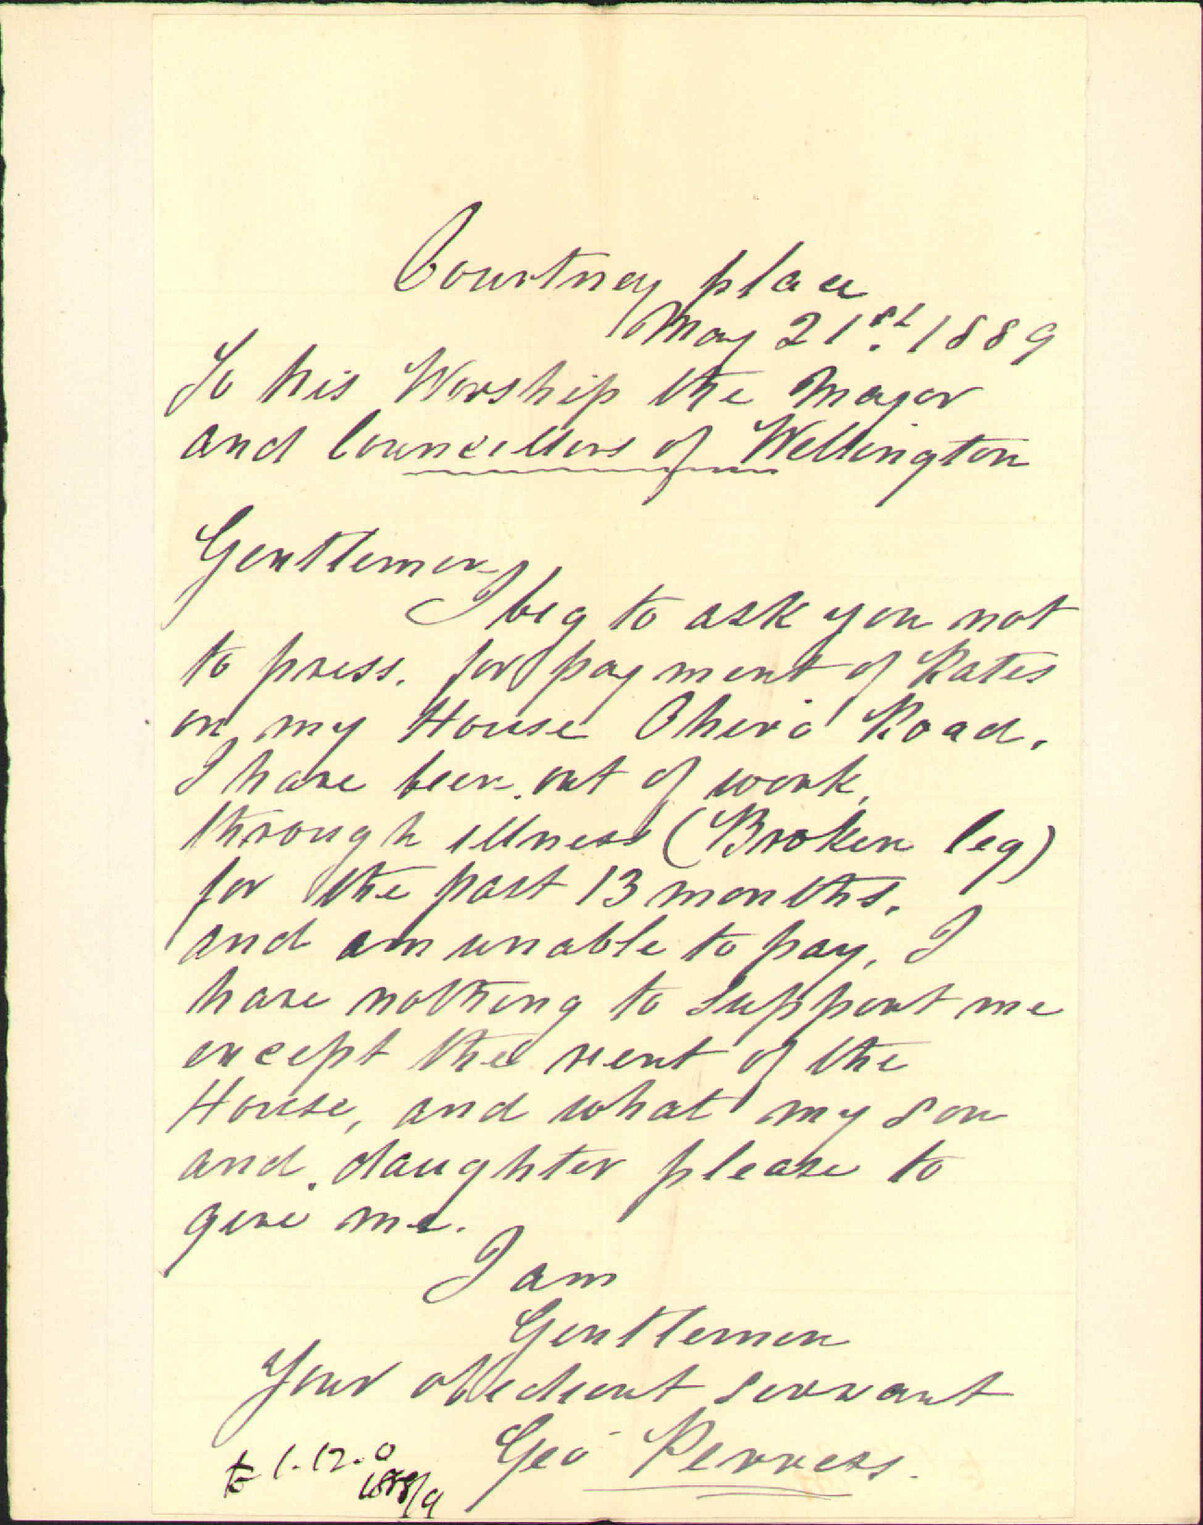 Courtney place
May 21st. 1889
To his Worship the Mayor
and Councillors of Wellington
Gentlemen
I beg to ask you not
to press. for payment of Rates
on my House Ohiro Road.
I have been out of work,
through illness (Broken leg)
for the past 13 months.
and am unable to pay, I
have nothing to support me
except the rent of the
House, and what my son
and daughter please to
give me.
I am
Gentlemen
Your obedient servant
Geo
£1.12.0
1888/9